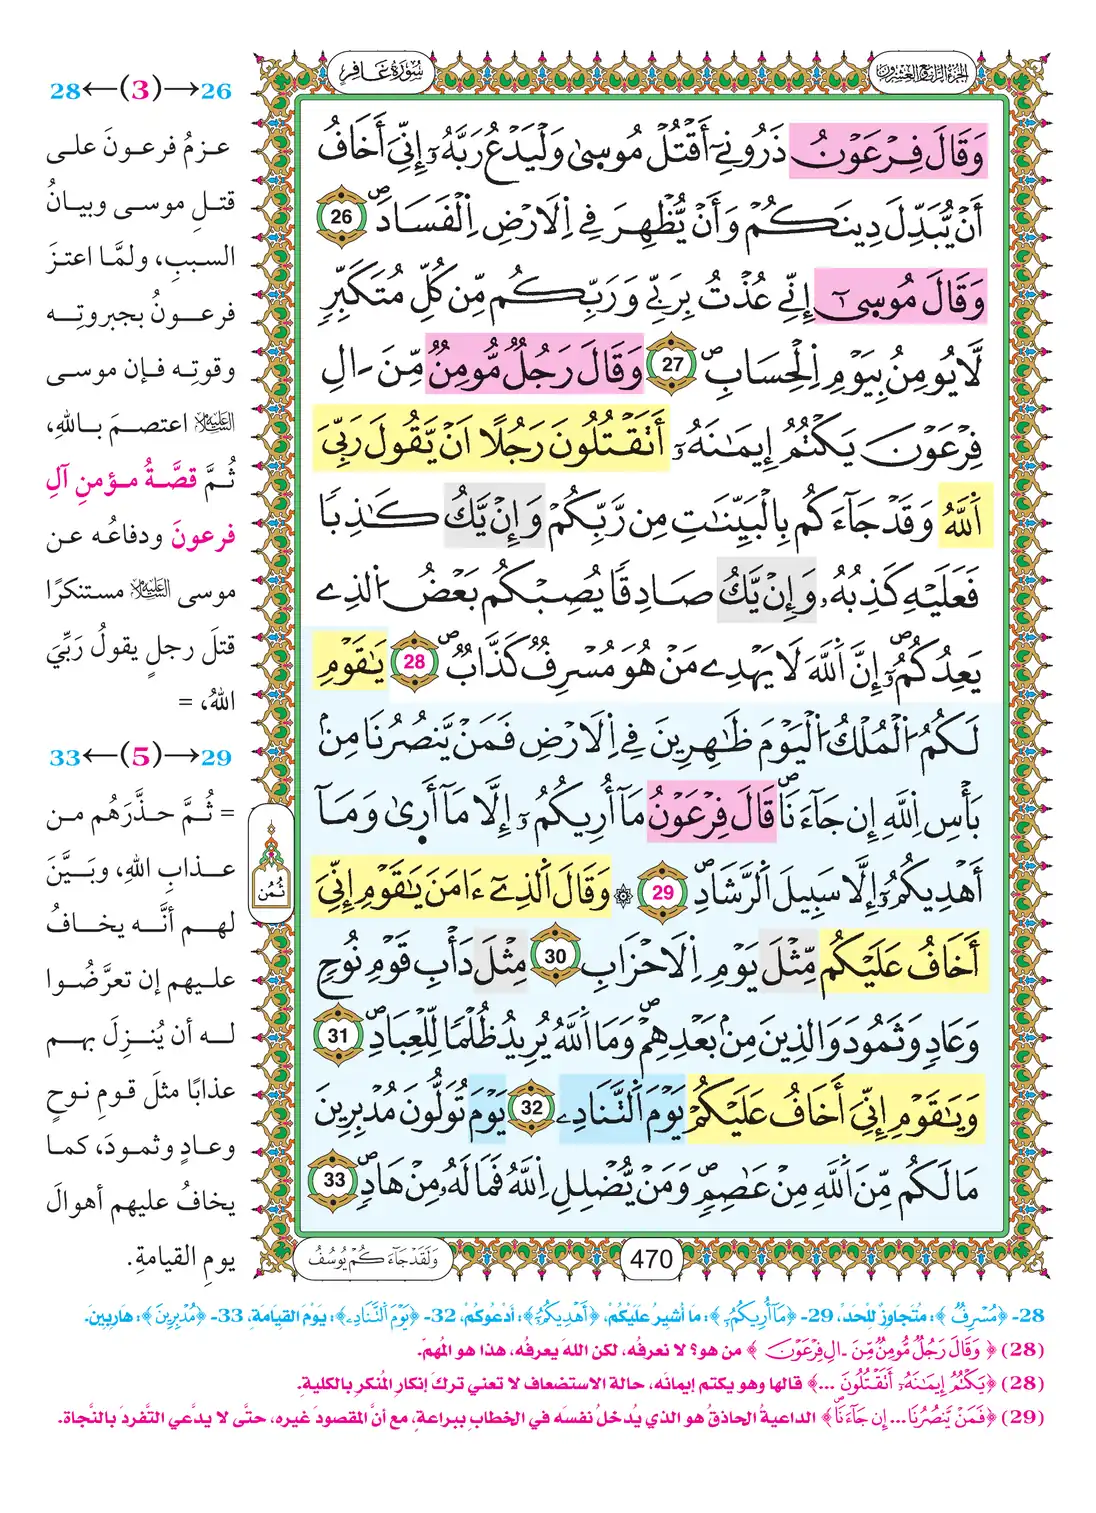 الجزء الرابع والعشرون
سُورَةُ غَافِرٍ
وَقَالَ فِرْعَوْنُ ذَرُونِےٓ أَقْتُلْ مُوسۭىٰ وَلْيَدْعُ رَبَّهُۥٓ إِنِّيَ أَخَافُ
أَنْ يُّبَدِّلَ دِينَكُمْ وَأَنْ يُّظْهِرَ فِے اِ۬لَارْضِ اِ۬لْفَسَادَۖ 26
وَقَالَ مُوسۭىٰٓ إِنِّے عُذْتُ بِرَبِّے وَرَبِّكُم مِّن كُلِّ مُتَكَبِّرٖ
لَّا يُومِنُ بِيَوْمِ اِ۬لْحِسَابِۖ 27 وَقَالَ رَجُلٞ مُّومِنٞ مِّنَ اٰلِ
فِرْعَوْنَ يَكْتُمُ إِيمَٰنَهُۥٓ أَتَقْتُلُونَ رَجُلًا اَنْ يَّقُولَ رَبِّيَ
اَ۬للَّهُ وَقَدْ جَآءَكُم بِالْبَيِّنَٰتِ مِن رَّبِّكُمْ وَإِنْ يَّكُ كَٰذِباٗ
فَعَلَيْهِ كَذِبُهُۥ وَإِنْ يَّكُ صَادِقاٗ يُصِبْكُم بَعْضُ اُ۬لذِے
يَعِدُكُمُۥٓۖ إِنَّ اَ۬للَّهَ لَا يَهْدِے مَنْ هُوَ مُسْرِفٞ كَذَّابٞۖ 28 يَٰقَوْمِ
لَكُمُ اُ۬لْمُلْكُ اُ۬لْيَوْمَ ظَٰهِرِينَ فِے اِ۬لَارْضِ فَمَنْ يَّنصُرُنَا مِنۢ
بَأْسِ اِ۬للَّهِ إِن جَآءَنَاۖ قَالَ فِرْعَوْنُ مَآ أُرِيكُمُۥٓ إِلَّا مَآ أَرٜىٰ وَمَآ
أَهْدِيكُمُۥٓ إِلَّا سَبِيلَ اَ۬لرَّشَادِۖ 29 ۞ وَقَالَ اَ۬لذِےٓ ءَامَنَ يَٰقَوْمِ إِنِّيَ
أَخَافُ عَلَيْكُم مِّثْلَ يَوْمِ اِ۬لَاحْزَابِ 30 مِثْلَ دَأْبِ قَوْمِ نُوحٖ
وَعَادٖ وَثَمُودَ وَالذِينَ مِنۢ بَعْدِهِمْۖ وَمَا اَ۬للَّهُ يُرِيدُ ظُلْماٗ لِّلْعِبَادِۖ 31
وَيَٰقَوْمِ إِنِّيَ أَخَافُ عَلَيْكُمْ يَوْمَ اَ۬لتَّنَادِۦ 32 يَوْمَ تُوَلُّونَ مُدْبِرِينَ
مَا لَكُم مِّنَ اَ۬للَّهِ مِنْ عَاصِمٖۖ وَمَنْ يُّضْلِلِ اِ۬للَّهُ فَمَا لَهُۥ مِنْ هَادٖۖ 33
ثُمُن
470
وَلَقَدْ جَآءَكُمْ يُوسُفُ
26→(3)←28
عـزمُ فرعـونَ علـى
قتـلِ موسـى وبيـانُ
السـببِ، ولمَّـا اعتـزَ
فرعـونُ بجبروتِـه
وقوتِـه فـإن موسـى
عليه السلام اعتصـمَ بـاللهِ،
ثُـمَّ قصَّـةُ مـؤمنِ آلِ
فرعونَ ودفاعُـه عـن
موسى عليه السلام مستنكرًا
قتلَ رجلٍ يقولُ رَبِّيَ
اللهُ، =
29→(5)←33
= ثُـمَّ حـذَّرَهُم مـن
عـذابِ اللهِ، وبَـيَّنَ
لهـم أنَّـه يخـافُ
علـيهم إن تعرَّضُـوا
لـه أن يُنـزِلَ بهـم
عذابًا مثلَ قـومِ نـوحٍ
وعـادٍ وثمـودَ، كمـا
يخافُ عليهم أهوالَ
يومِ القيامةِ.
28- ﴿مُسْرِفٞ﴾: مُتَجاوِزٌ للْحَدِّ، 29- ﴿مَآ أُرِيكُمُۥٓ﴾: مَا أُشِيرُ عَلَيْكُمْ، ﴿أَهْدِيكُمُۥٓ﴾: أدْعُوكُمْ، 32- ﴿يَوْمَ اَ۬لتَّنَادِۦ﴾: يَوْمَ القِيَامَةِ، 33- ﴿مُدْبِرِينَ﴾: هَارِبِينَ.
(28) ﴿وَقَالَ رَجُلٞ مُّومِنٞ مِّنَ اٰلِ فِرْعَوْنَ﴾ من هو؟ لا نعرفُه، لكن اللهَ يعرفُه، هذا هو المُهِمّ.
(28) ﴿يَكْتُمُ إِيمَٰنَهُۥٓ أَتَقْتُلُونَ ...﴾ قالها وهو يكتم إيمانَه، حالة الاستضعاف لا تعني تركَ إنكارِ المُنكرِ بالكليةِ.
(29) ﴿فَمَنْ يَّنصُرُنَا ... إِن جَآءَنَاۖ﴾ الداعيةُ الحاذقُ هو الذي يُدخلُ نفسَه في الخطابِ ببراعةٍ، مع أنَّ المقصودَ غيرُه، حتَّى لا يدَّعي التَّفردَ بالنَّجاةِ.